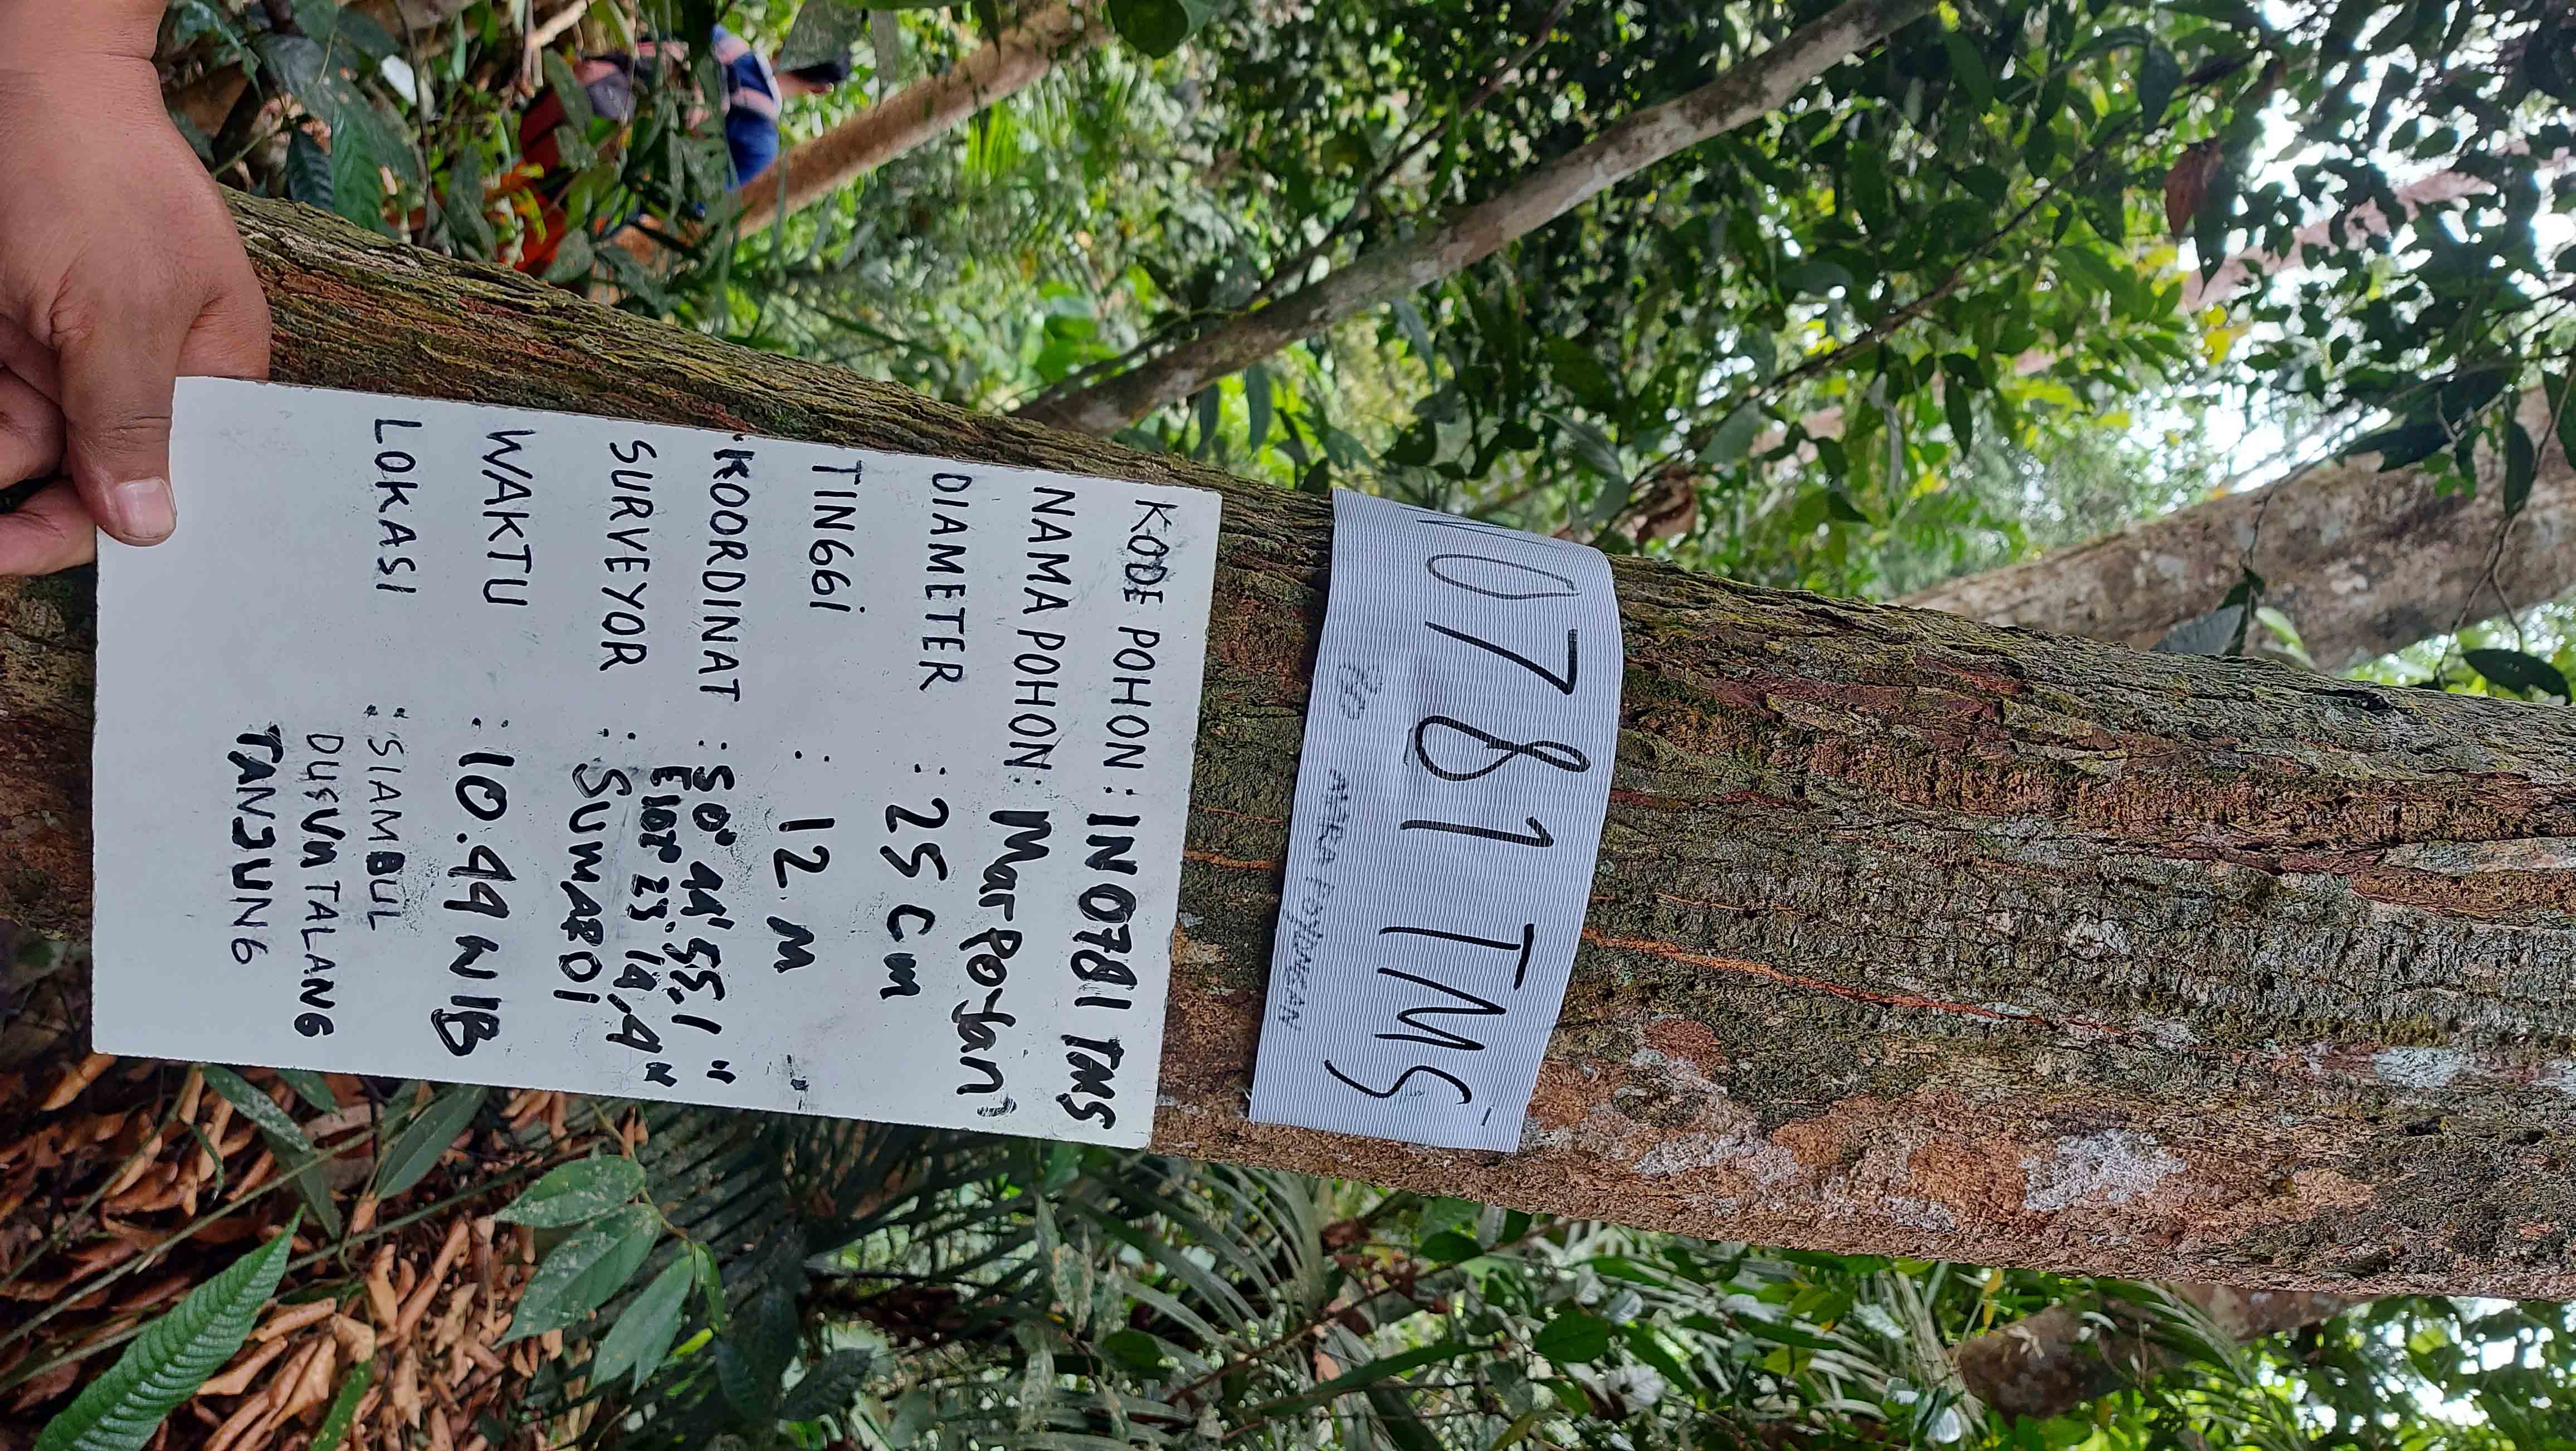 N0781 TMS
KODE POHON : IN0781 TMS
NAMA POHON : Marpoyan
DIAMETER : 25 cm
TINGGI : 12 M
KOORDINAT : S 0° 44' 55,1"
E 102° 23' 14,4"
SURVEYOR : SUMARDI
WAKTU : 10.44 WIB
LOKASI : SIAMBUL
DUSUN TALANG
TANJUNG